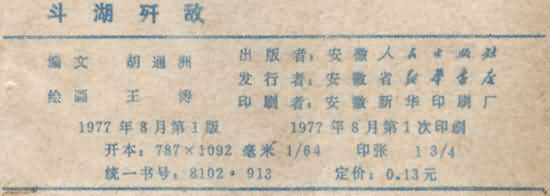 斗湖歼敌
编文 胡通洲
绘画 王涛
出版者：安徽人民出版社
发行者：安徽省新华书店
印刷者：安徽新华印刷厂
1977年8月第1版 1977年8月第1次印刷
开本：787×1092 毫米 1/64 印张 1 3/4
统一书号：8102·913 定价：0.13元